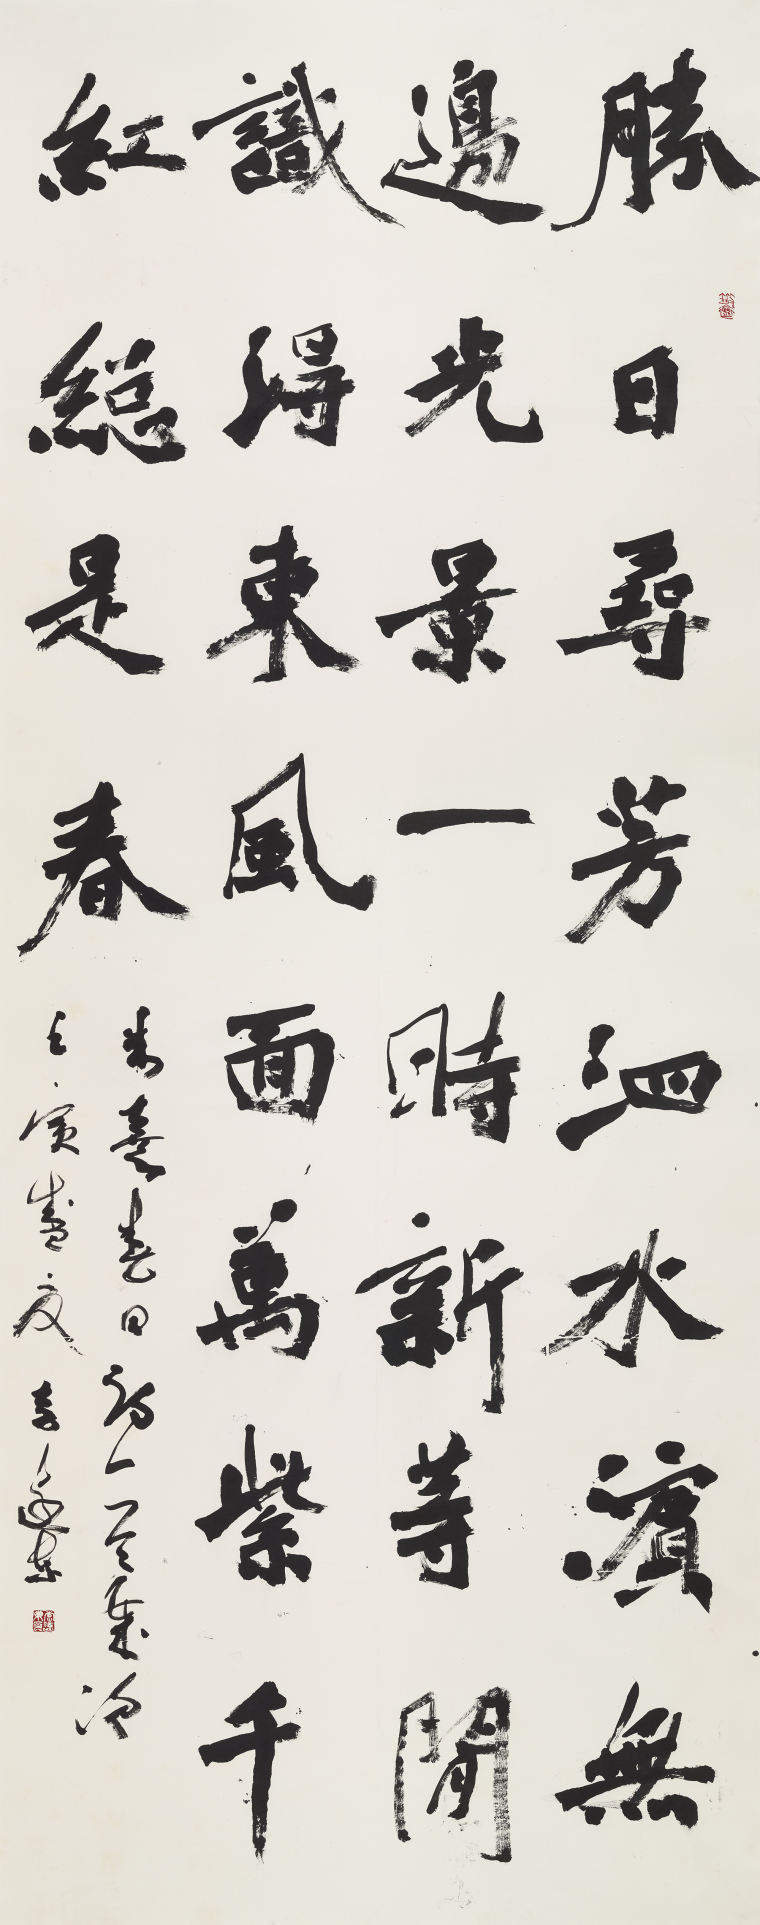 勝日尋芳泗水濱無
邊光景一時新等閒
識得東風面萬紫千
紅總是春
朱熹春日詩一
壬寅盛夏